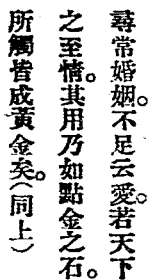 尋常婚姻。不足云愛。若天下
之至情。其用乃如點金之石。
所觸皆成黃金矣。(同上)